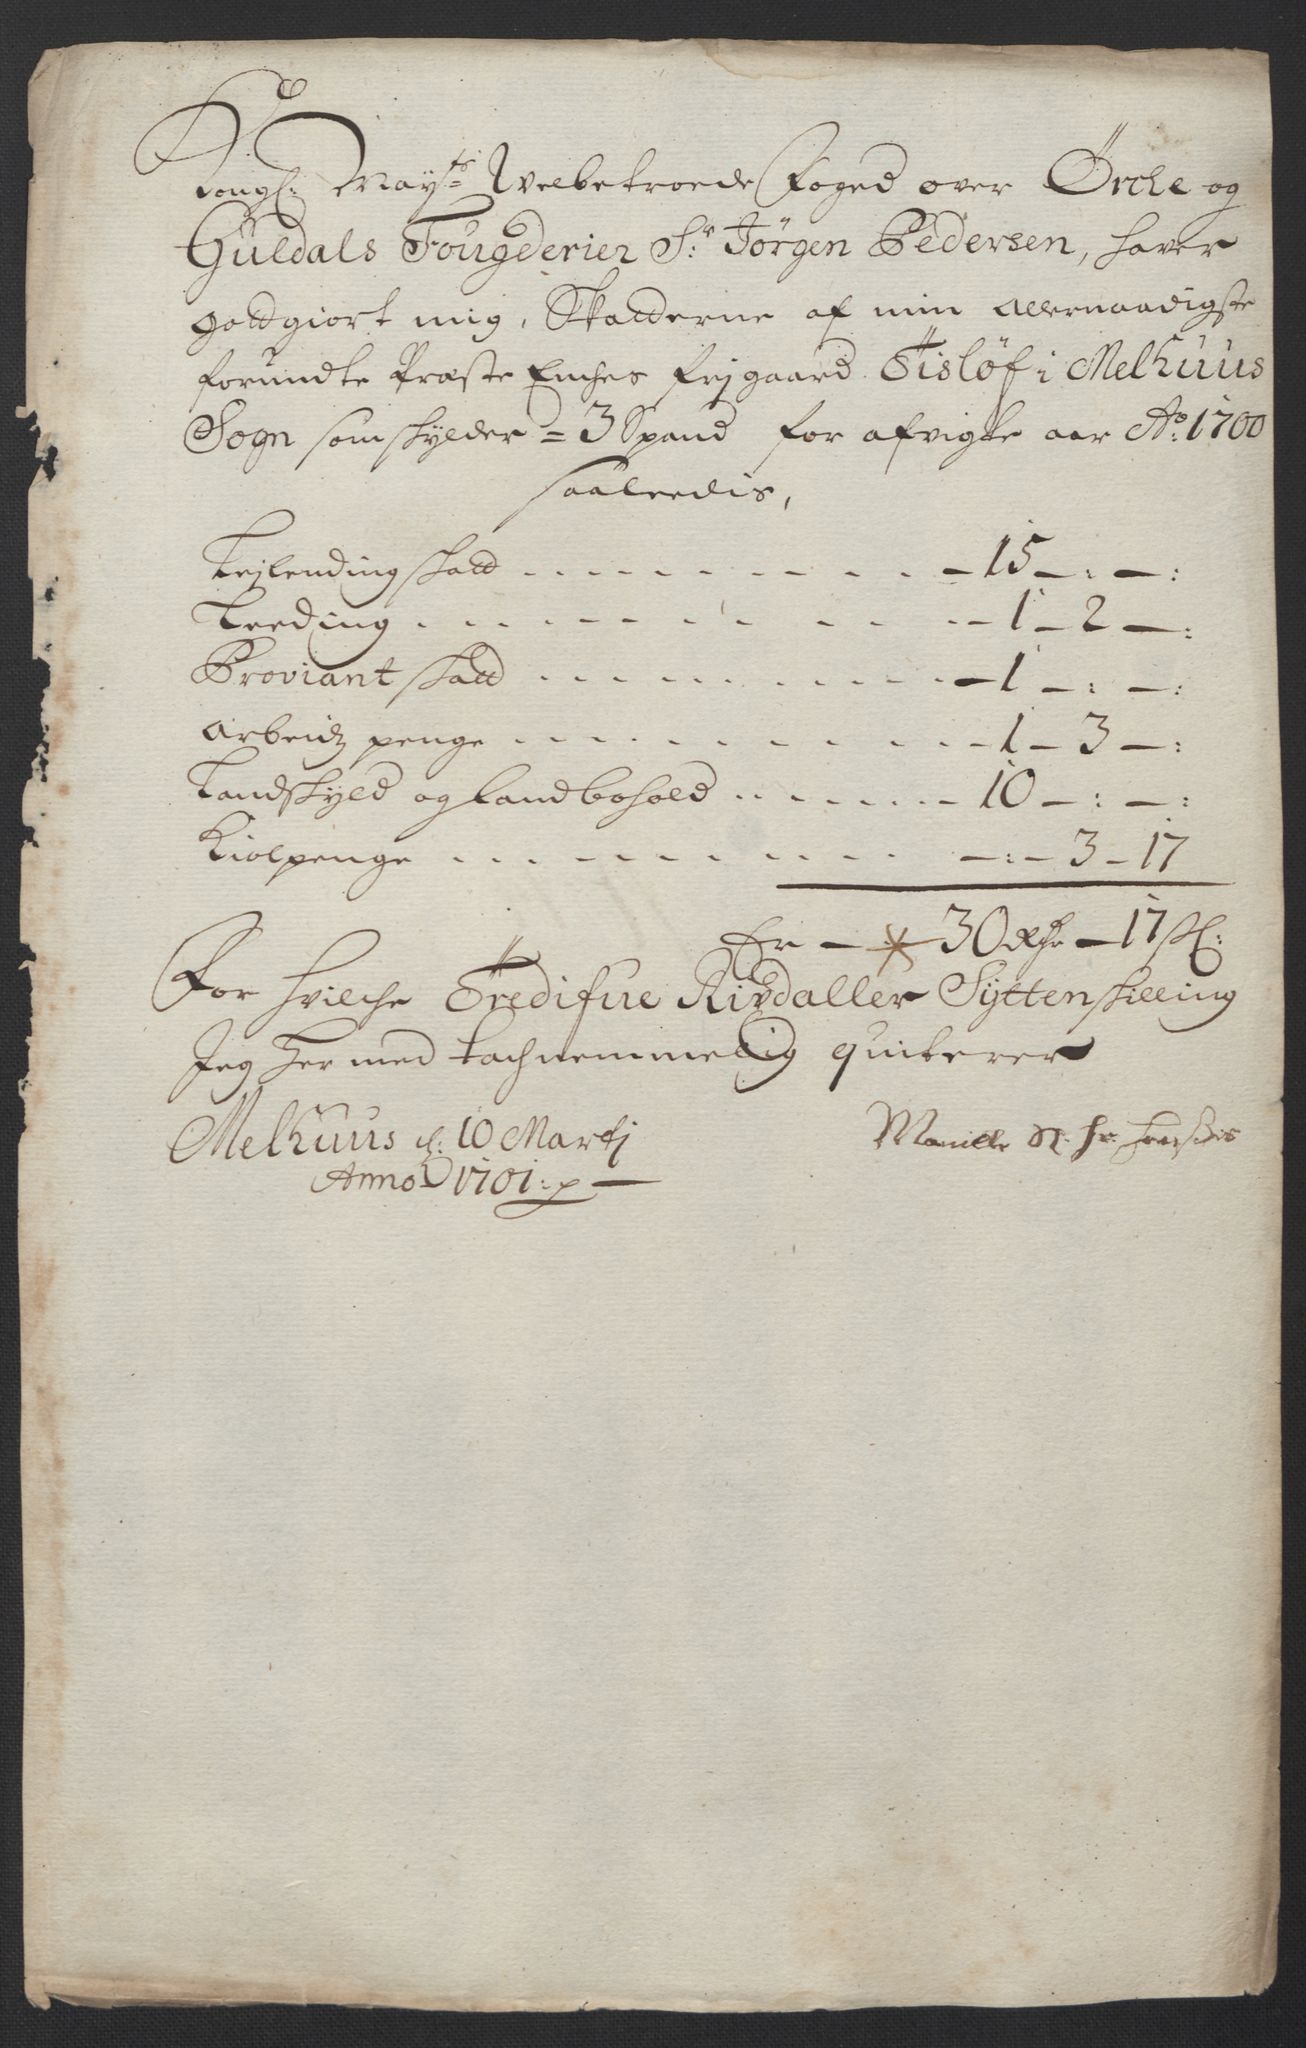 Kongl: Mayts Welbetroede Foged over Örche og
Guldals Fougderier Sr: Jörgen Pedersen, hafver
gottgiort mig, Skatterne af min allernaadigste
forundte Præste Enches frjgaard Tislöf i Melhuus
Sogn som skylder = 3 Spand for afvigte aar Ao: 1700
saaleedis,
Leylendingskatt - 15 - : - :
Leeding - 1 - 2 - :
Proviantskatt - 1 - : - :
Arbeidz penge - 1 - 3 - :
Landskyld og landbohold - 10 - : - :
Kiolpenge - : - 3 - 17
Er - 30 Rdr - 17 sk:
For hvilche Tredifue Rixdaller Sytten skilling
Jeg her med tachnemmelig quiterer
Melhuus d: 10 Martj
Anno 1701:
Marielle Sl: Hr: